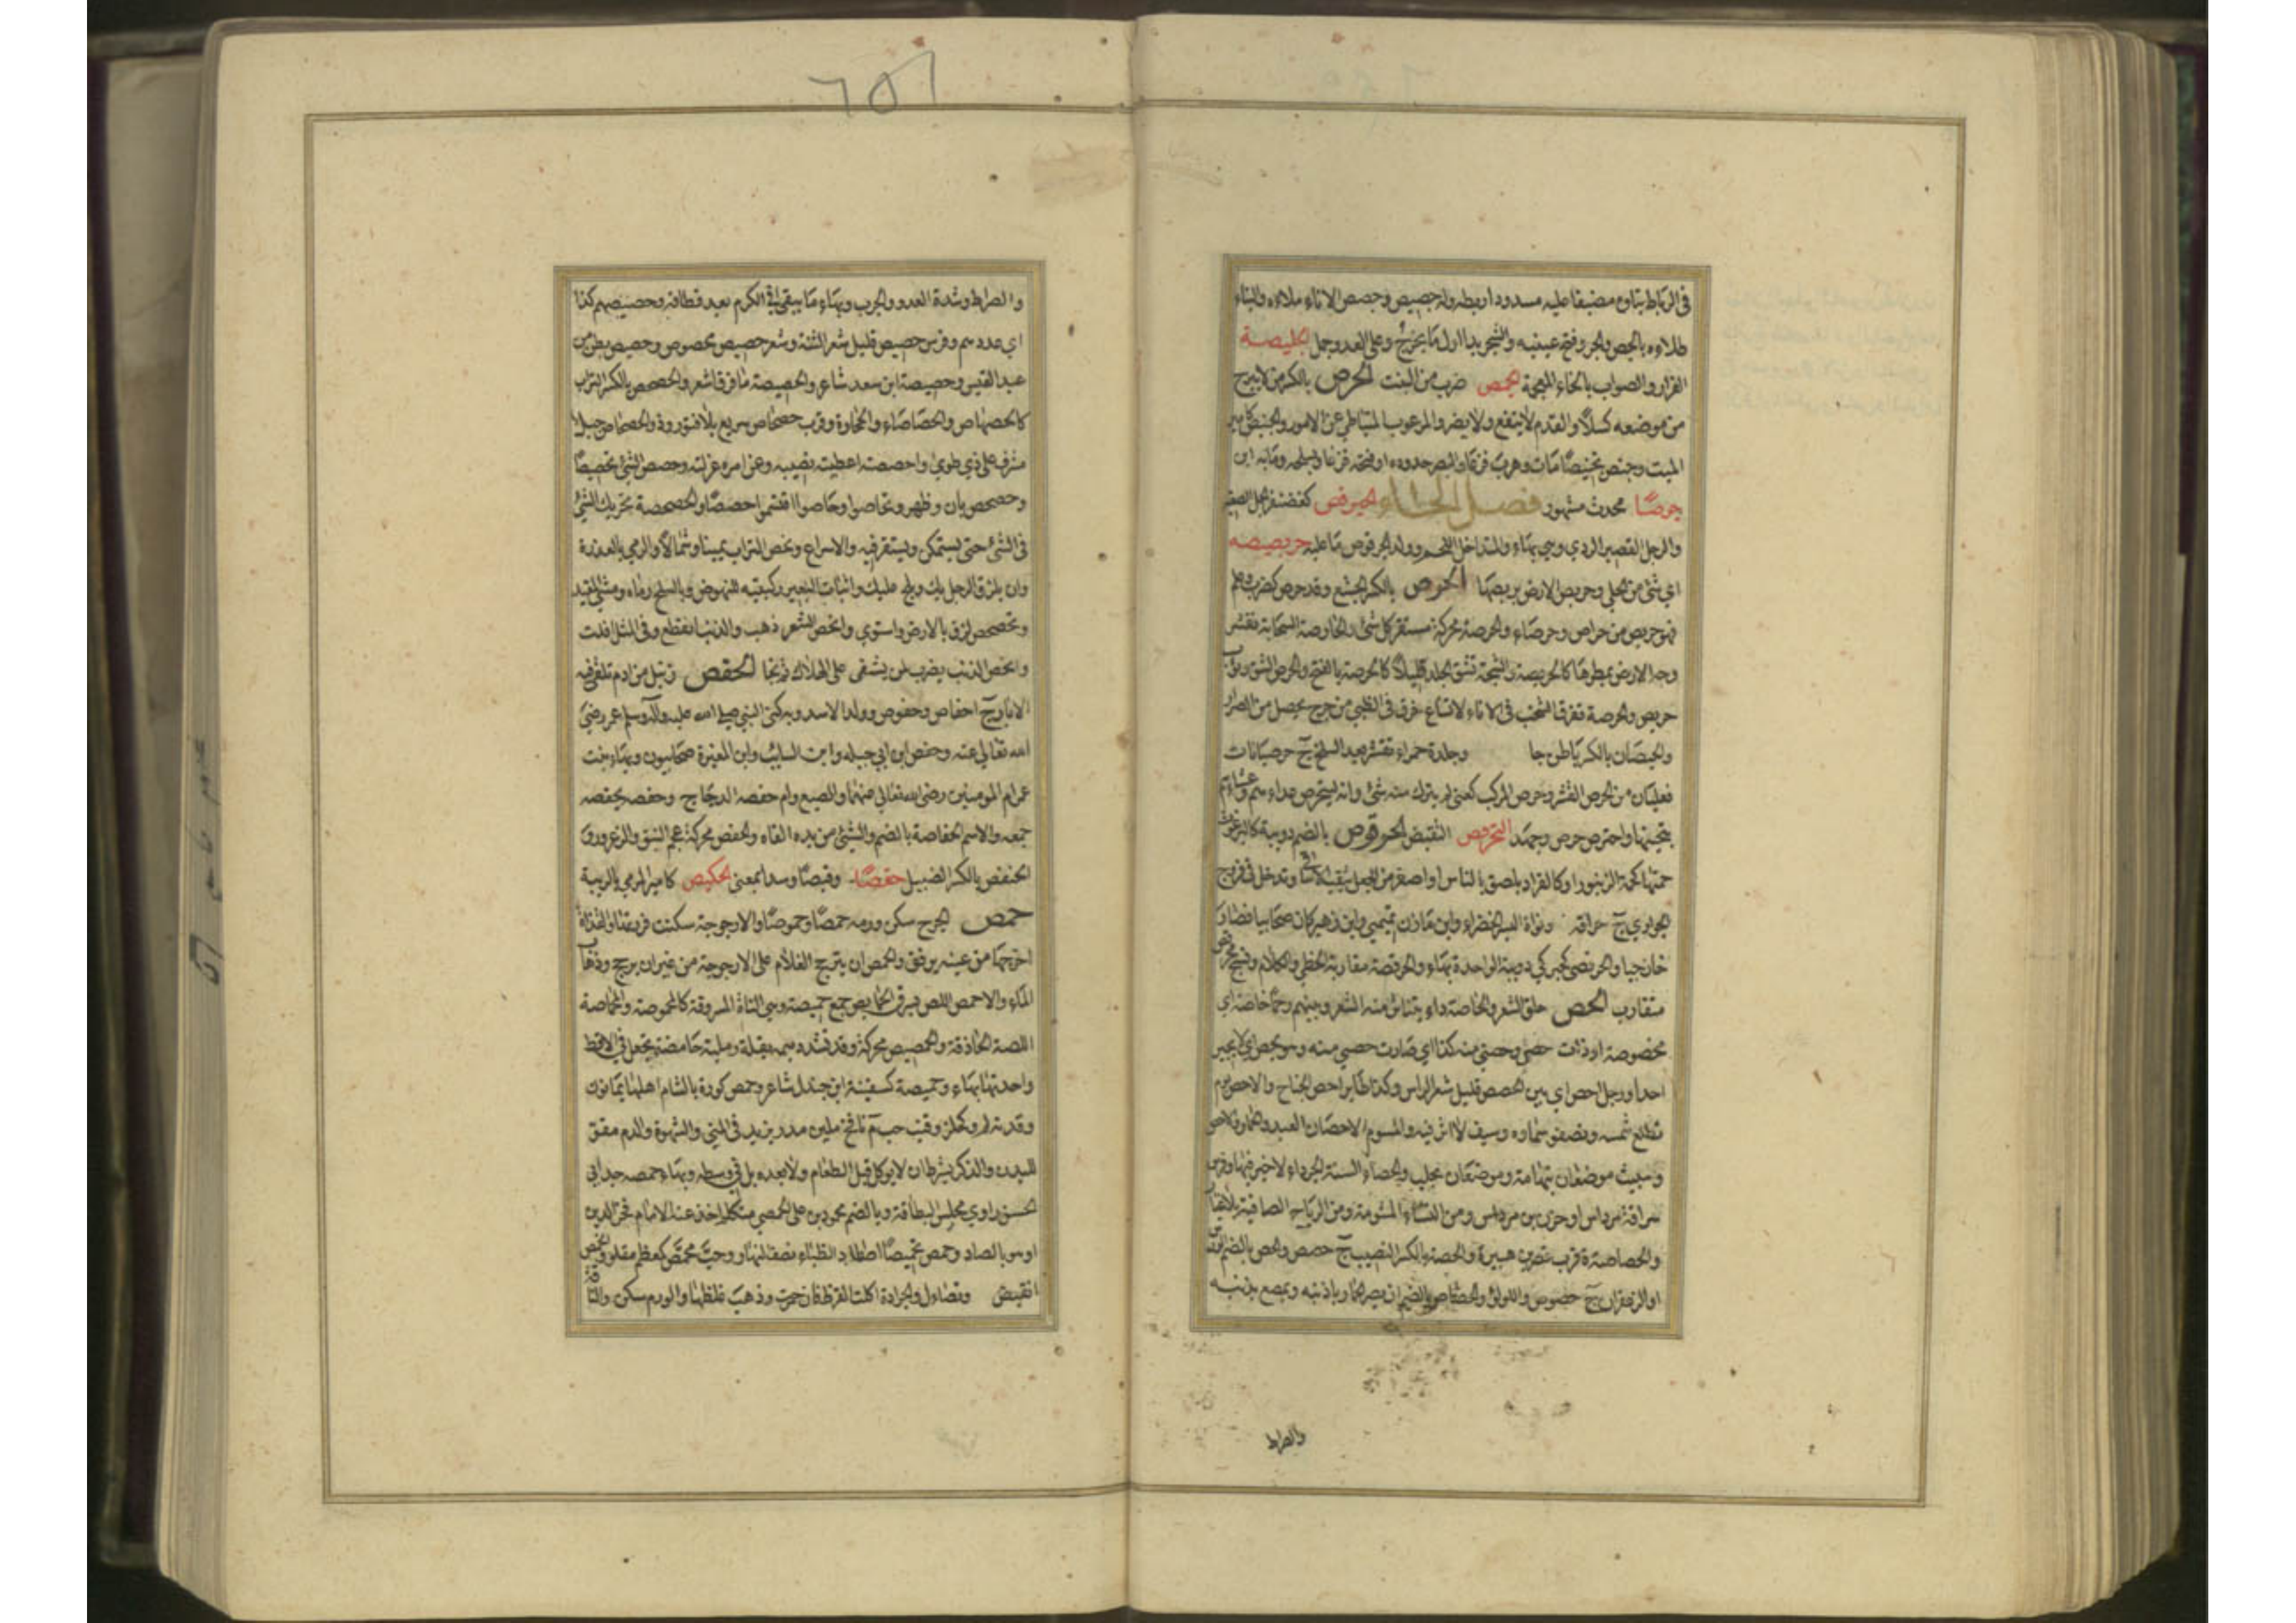 في الرباط يتاون مضيقا عليه مسدودا ربطه وله جصيص وجصص الاناء ملاءه والبناء
طلاءه بالجص والجرو فتح عينيه والشجر بدا اول ما يخرج وعلى العدو حمل الجليصة
الفرار والصواب بالخاء المعجمة الجمص ضرب من النبت الحرص بالكسر من لا يبرح
من موضعه كسلاً والفدم لا ينفع ولا يضر والمرعوب المتباطئ عن الامور والجنيص كامير
الميت وجنص تجنيصًا مات وهرب فزعًا والبصر حدده او فتحه فزعا وبسلحه رمى به ابن
جوصًا محدث مشهور فصل الحاء الحبرقص كغضنفر الجمل الصغير
والرجل القصير الردي وهي بهاء والمتداخل اللحم وولد الحرقوص ما عليه حربصيصه
اي شئ من الحلي وحربص الارض بربصها الحرص بالكسر الجشع وقد حرص كضرب وعلم
فهو حريص من حراص وحرصاء والحرصة محركة مستقر كل شئ والحارصة السحابة تقشر
وجه الارض بمطرها كالحريصة والشجة تشق الجلد قليلاً كالحرصة بالفتح والحرص الشق وثوب
حريص والحرصة تفرقا الشخب في الاناء لاتساع خرق في الطبي من جرح يحصل من الصرار
والحرصيان بالكسر باطن جلد وجلدة حمراء تقشر بعد السلخ ج حرصيانات
فعليان من الحرص القشر وحرص المرعى كعنى لم يترك منه شئ وانه ليتحرص غداءهم وعشاءهم
يتحينها واحترص حرص وجهد التحرفص التقبض الحرقوص بالضم دويبة كالبرغوث
حمتها كحمة الزنبور او كالقراد يلصق بالناس او اصغر من الجعل ينقب الاساقي وتدخل في فروج
الجواري ج حراقه ونواة البسر الخضراء وابن مازن تميمي وابن زهير كان صحابيا فصار
خارجيا والحرقصى كحبركى دويبة الواحدة بهاء والحرقصة مقاربة الخطى والكلام ونسج محرقص
متقارب الحص حلق الشعر والحاصة داء يتناثر منه الشعر وبينهم رحم حاصة اي
محصوصة او ذات حص وحصني منه كذا اي صارت حصتي منه وهو يحص اي لا يجير
احدا ورجل احص اي بين الحصص قليل شعر الراس وكذا طاير احص الجناح والاحص يوم
تطلع شمسه وتصفو سماوه وسيف لا اثر فيه والمشوم والاحصان العبد والحمار والاحص
وشبيث موضعان بتهامة وموضعان بحلب والحصاء السنة الجرداء لا خير فيها وفرس
سراقة بن مرداس او حزن بن مرداس ومن النساء المشومة ومن الرياح الصافية بلا غبار
والحصاصة ة قرب قصر بن هبيرة والحصة بالكسر النصيب ج حصص والحص بالضم الورس
او الزعفران ج حصوص واللولؤ والحصاص بالضم ان يصر الحمار باذنيه ويمصع بذنبه
والضراط
والضراط وشدة العدو والجرب وبهاء ما يبقى في الكرم بعد قطافه وحصيصهم كذا
اي عددهم وفرس حصيص قليل شعر الثنة وشعر حصيص محصوص وحصيص بطن من
عبد القيس وحصيصة ابن سعد شاعر والحصيصة ما فرق اشعر والحصحص بالكسر التراب
كالحصحاص والحصاصاء والحجارة وقرب حصحاص سريع بلا فتور وذو الحصحاص جبل
مشرف على ذي طوى واحصصته اعطيته نصيبه وعن امره عزلته وحصص الشئ تحصيصًا
وحصحص بان وظهر وتحاصوا وحاصوا اقتسموا حصصًا والحصحصة تحريك الشئ
في الشئ حتى يستمكن ويستقر فيه والاسراع وفحص التراب يمينا وشمالاً والرمي بالعذرة
وان يلزق الرجل بك ويلح عليك واثبات البعير ركبتيه للنهوض وبالسلح رماه ومشى المقيد
وتحصحص لزق بالارض واستوى وانحص الشعر ذهب والذنب انقطع وفي المثل افلت
وانحص الذنب يضرب لمن يشفى على الهلاك ثم نجا الحفص زنبيل من ادم تنقى فيه
الابار ج احفاص وحفوص وولد الاسد وبه كنى النبي صلى الله عليه وآله وسلم عمر رضي
الله تعالى عنه وحفص ابن ابي جبله وابن السايب وابن المغيرة صحابيون وبهاء بنت
عمر ام المومنين رضى الله تعالى عنهما والضبع وام حفصه الدجاج وحفصه يحفصه
جمعه والاسم الحفاصة بالضم والشئ من يده القاه والحفص محركة عجم النبق والزعرور
الحنفص بالكسر الضئيل حقصًا وقبصًا وسدا بمعنى الحكيص كامير المرمي بالريبة
حمص الجرح سكن ورمه حمصًا وحموصًا والارجوحة سكنت فورتها والقذاة
اخرجها من عينه برفق والحمص ان يترجح الغلام على الارجوحة من غير ان يرجح وذهاب
الماء والاحمص اللص يسرق الحمايص جمع حميصة وهي الشاة المسروقة كالمحموصة والحماصة
اللصة الحاذقة والحمصيص محركة وقد تشدد ميمه بقلة رملية حامضة تجعل في الاقط
واحدتها بهاء وحميصة كسفينة ابن جندل شاعر وحمص كورة بالشام اهلها يمانون
وقد تذكر وكحلز وقنب حب م نافخ ملين مدر يزيد في المني والشهوة والدم مقو
للبدن والذكر بشرط ان لا يوكل قبل الطعام ولا بعده بل في وسطه وبهاء حمصه جد ابي
الحسن راوي مجلس البطاقة وبالضم محمود بن على الحمصي متكلم اخذ عنه الامام فخر الدين
او هو بالصاد وحمص تحميصًا اصطاد الظباء نصف النهار وحب محمص كمعظم مقلو وانحمص
انقبض وتضاءل والجرادة اكلت القرظ فاحمرت وذهب غلظها والورم سكن والناقة